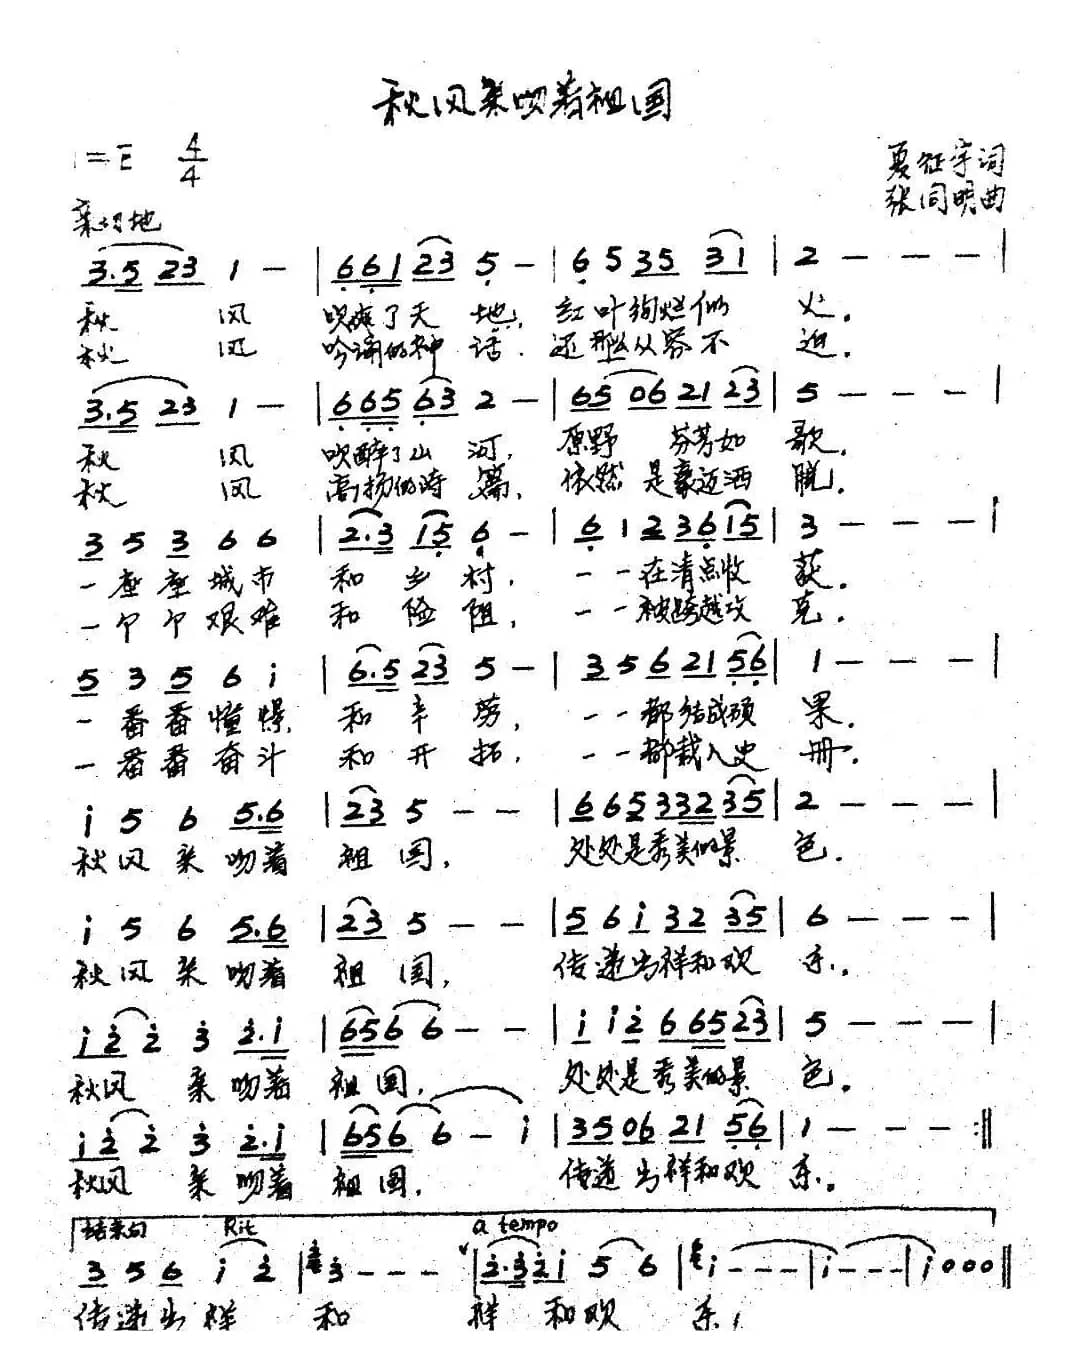 秋风柔吻着祖国
1=E 4/4
夏征宇词
张同明曲
亲切地
3.5 23 1 - | 661 23 5 - | 6 5 35 31 | 2 - - - |
秋 风 吹爽了天 地, 红叶绚烂似 火.
秋 风 吟诵的神 话. 还那么从容不 迫.
3.5 23 1 - | 665 63 2 - | 65 06 21 23 | 5 - - - |
秋 风 吹醉了山 河, 原野 芬芳如 歌.
秋 风 高扬的诗 篇, 依然 是豪迈洒 脱.
3 5 3 6 6 | 2.3 15 6 - | 6 1 2 36 15 | 3 - - - |
一座座城市 和 乡 村, 一一在清点收 获.
一个个艰难 和 险 阻, 一一被跨越攻 克.
5 3 5 6 i | 6.5 23 5 - | 3 5 6 21 56 | 1 - - - |
一番番憧憬, 和 辛 劳, 一一都结成硕 果.
一番番奋斗 和 开 拓, 一一都载入史 册.
i 5 6 5.6 | 23 5 - - | 6 6 5 332 35 | 2 - - - |
秋风柔吻着 祖 国, 处处是秀美的景 色.
i 5 6 5.6 | 23 5 - - | 5 6 i 32 35 | 6 - - - |
秋风柔吻着 祖 国, 传递出祥和欢 乐.
i 2 2 3 2.i | 656 6 - - | i i 2 6 65 23 | 5 - - - |
秋风 柔吻着 祖国, 处处是秀美的景 色.
i 2 2 3 2.i | 656 6 - i | 35 06 21 56 | 1 - - - :||
秋风 柔吻着 祖国, 传递出祥和欢 乐.
结束句 Rit a tempo
3 5 6 i 2 | 3 - - - | 2.3 2i 5 6 | i - - - | i - - - | i 0 0 0 ||
传递出祥 和 祥 和欢 乐,